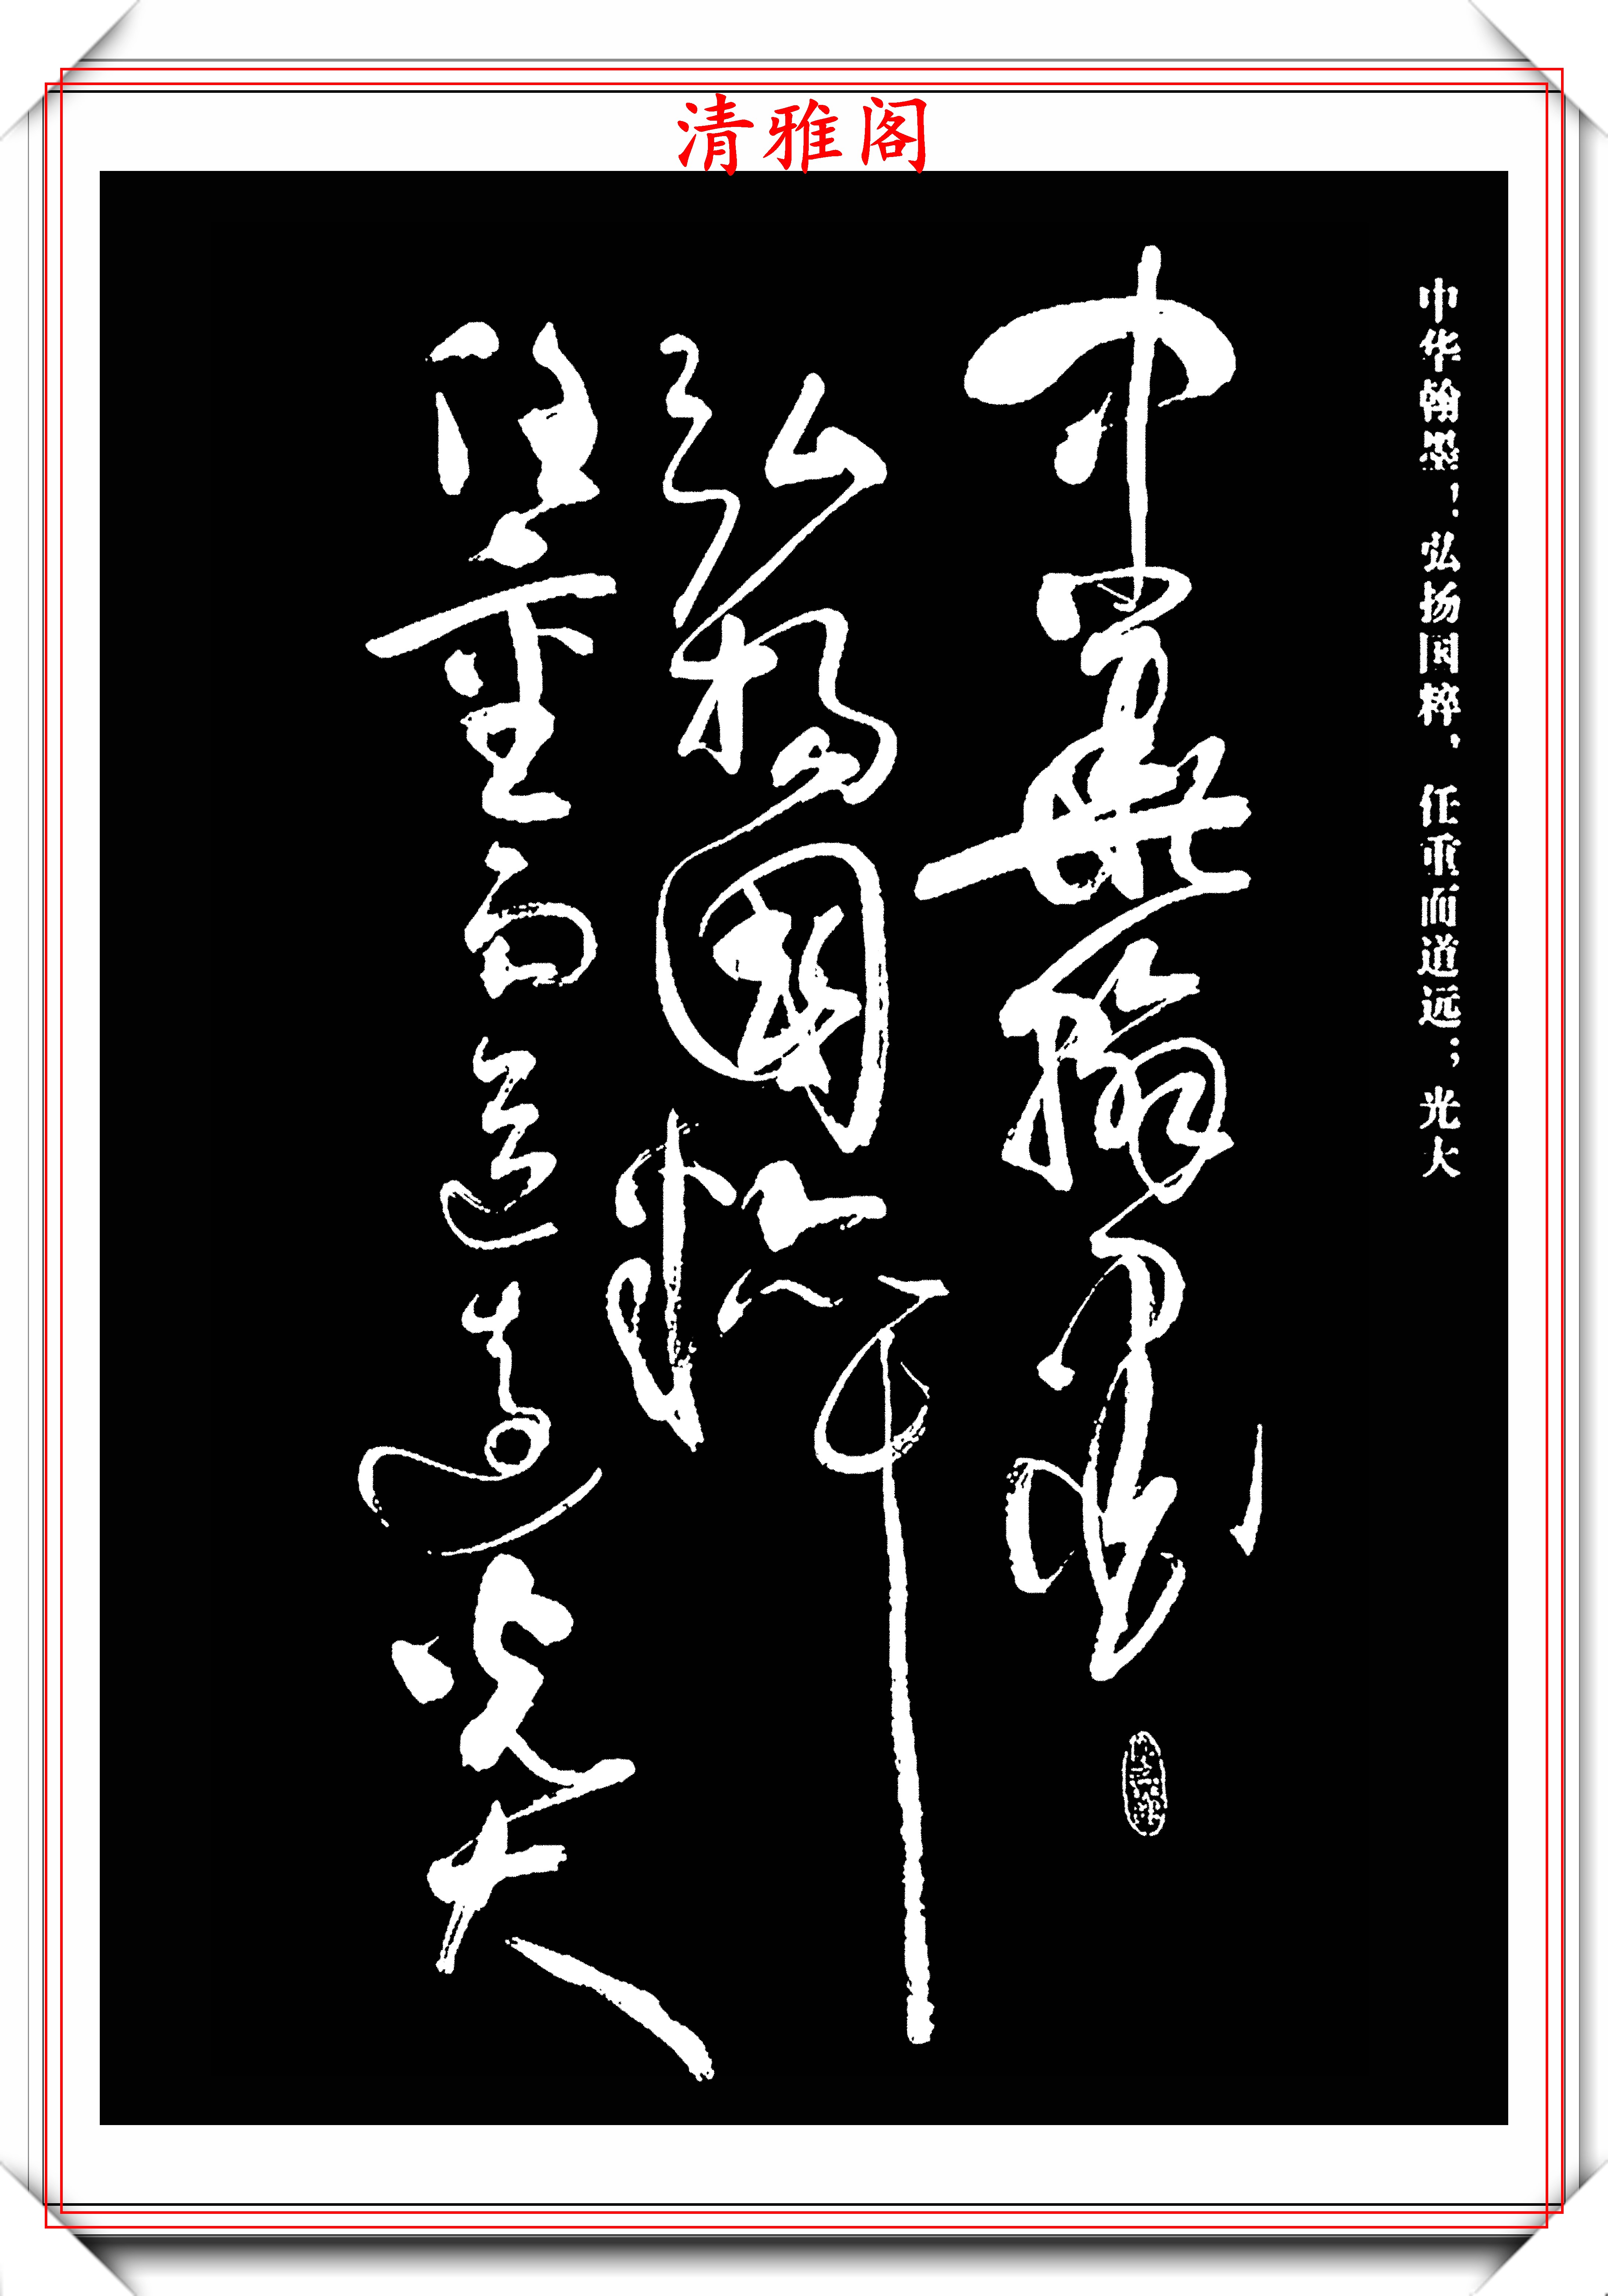 清雅阁
中华翰墨！弘扬国粹，任重而道远；光大
中華翰墨
弘揚國粹
任重而道遠光大